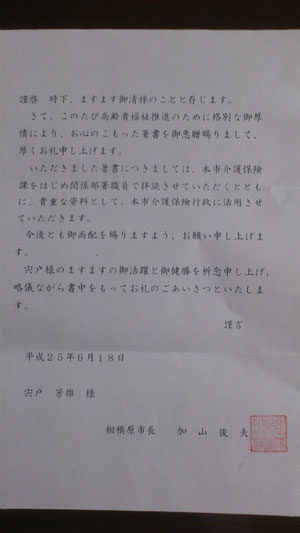 謹啓　時下、ますます御清祥のことと存じます。
　さて、このたび高齢者福祉推進のために格別な御厚
情により、お心のこもった著書を御恵贈賜りまして、
厚くお礼申し上げます。
　いただきました著書につきましては、本市介護保険
課をはじめ関係部署職員で拝読させていただくととも
に、貴重な資料として、本市介護保険行政に活用させ
ていただきます。
　今後とも御高配を賜りますよう、お願い申し上げま
す。
　宍戸様のますますの御活躍と御健勝を祈念申し上げ、
略儀ながら書中をもってお礼のごあいさつといたしま
す。
謹言
平成２５年６月１８日
宍戸　芳雄　様
相模原市長　加　山　俊　夫